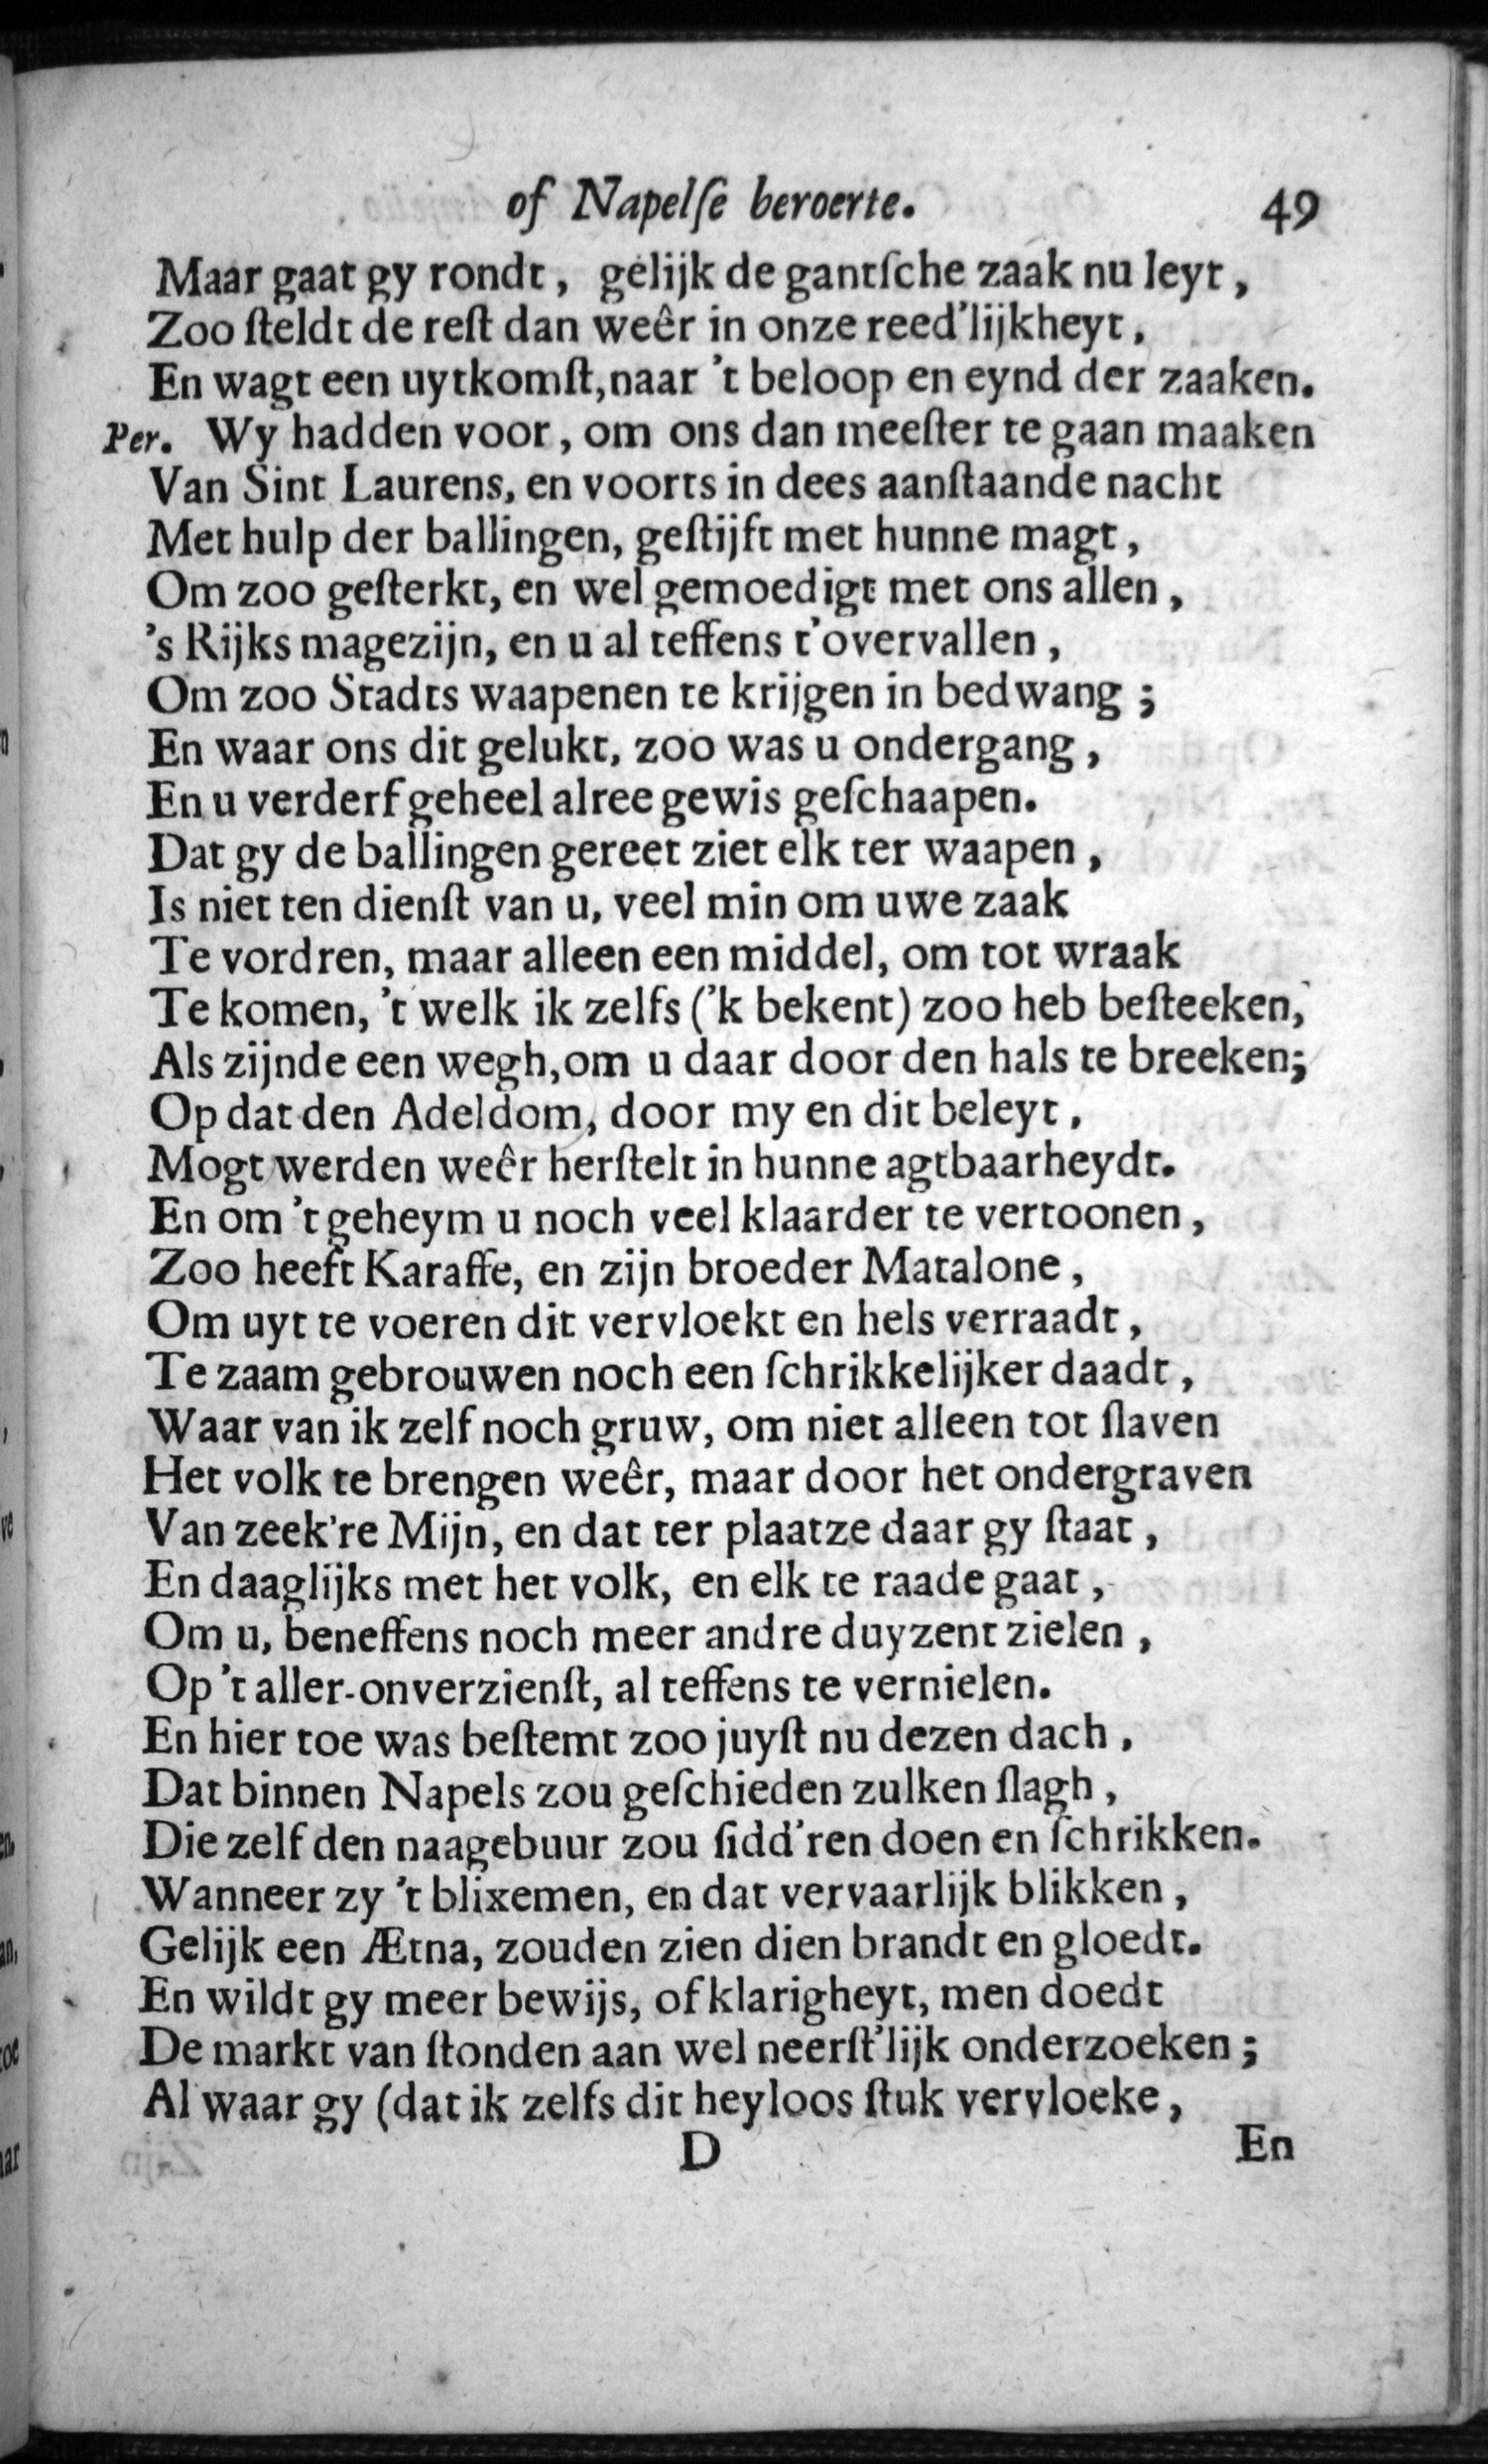 of Napelſe beroerte. 49
Maar gaat gy rondt, gelijk de gantſche zaak nu leyt,
Zoo ſteldt de reſt dan weêr in onze reed'lijkheyt,
En wagt een uytkomſt, naar 't beloop en eynd der zaaken.
Per. Wy hadden voor, om ons dan meeſter te gaan maaken
Van Sint Laurens, en voorts in dees aanſtaande nacht
Met hulp der ballingen, geſtijft met hunne magt,
Om zoo geſterkt, en wel gemoedigt met ons allen,
's Rijks magezijn, en u al teffens t'overvallen,
Om zoo Stadts waapenen te krijgen in bedwang;
En waar ons dit gelukt, zoo was u ondergang,
En u verderf geheel alree gewis geſchaapen.
Dat gy de ballingen gereet ziet elk ter waapen,
Is niet ten dienſt van u, veel min om uwe zaak
Te vordren, maar alleen een middel, om tot wraak
Te komen, 't welk ik zelfs ('k bekent) zoo heb beſteeken,
Als zijnde een wegh, om u daar door den hals te breeken;
Op dat den Adeldom, door my en dit beleyt,
Mogt werden weêr herſtelt in hunne agtbaarheydt.
En om 't geheym u noch veel klaarder te vertoonen,
Zoo heeft Karaffe, en zijn broeder Matalone,
Om uyt te voeren dit vervloekt en hels verraadt,
Te zaam gebrouwen noch een ſchrikkelijker daadt,
Waar van ik zelf noch gruw, om niet alleen tot ſlaven
Het volk te brengen weêr, maar door het ondergraven
Van zeek're Mijn, en dat ter plaatze daar gy ſtaat,
En daaglijks met het volk, en elk te raade gaat,
Om u, beneffens noch meer andre duyzent zielen,
Op 't aller-onverzienſt, al teffens te vernielen.
En hier toe was beſtemt zoo juyſt nu dezen dach,
Dat binnen Napels zou geſchieden zulken ſlagh,
Die zelf den naagebuur zou ſidd'ren doen en ſchrikken.
Wanneer zy 't blixemen, en dat vervaarlijk blikken,
Gelijk een Ætna, zouden zien dien brandt en gloedt.
En wildt gy meer bewijs, of klarigheyt, men doedt
De markt van ſtonden aan wel neerſt'lijk onderzoeken;
Al waar gy (dat ik zelfs dit heyloos ſtuk vervloeke,
D En